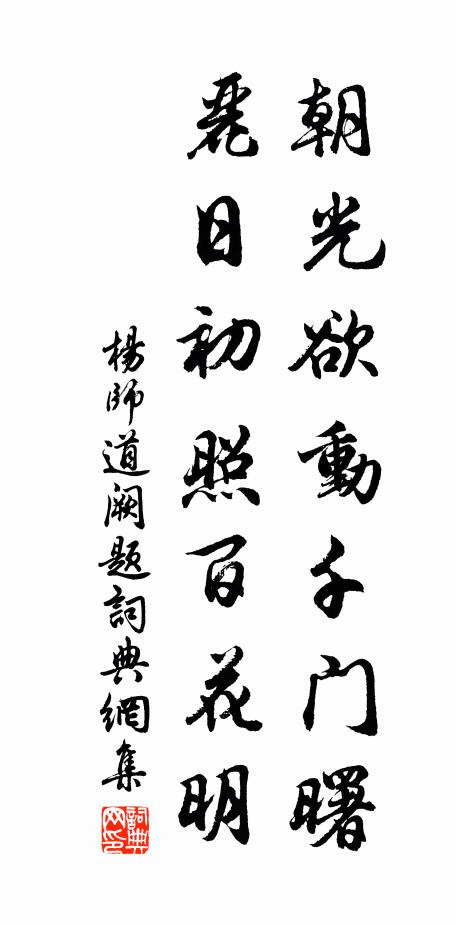 朝光欲動千门曙
麗日初照百花明
楊師道闕題詞典網集
詞典网印